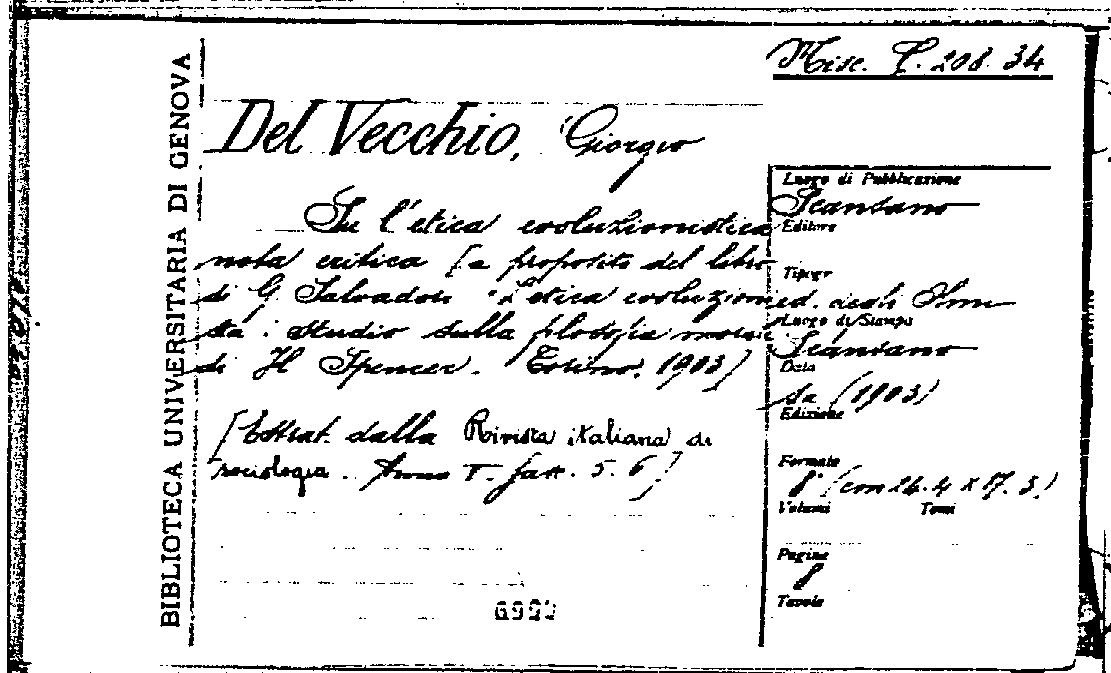 Misc. F. 208. 34
BIBLIOTECA UNIVERSITARIA DI GENOVA
Del Vecchio, Giorgio
Su l'etica evoluzionistica
nota critica [a proposito del libro
di G. Salvadori "L'etica evoluzioni
sta: Studio sulla filosofia morale
di H Spencer. Torino, 1903]
[Estrat. dalla Rivista italiana di
sociologia. Anno fasc. 5. 6]
6992
Luogo di Pubblicazione
Scansano
Editore
Tipogr
ed. degli
Luogo di Stampa
Scansano
Data
sa (1903)
Edizione
Formato
8° (cm 24.4 x 17.3)
Volumi Tomi
Pagine
8
Tavole